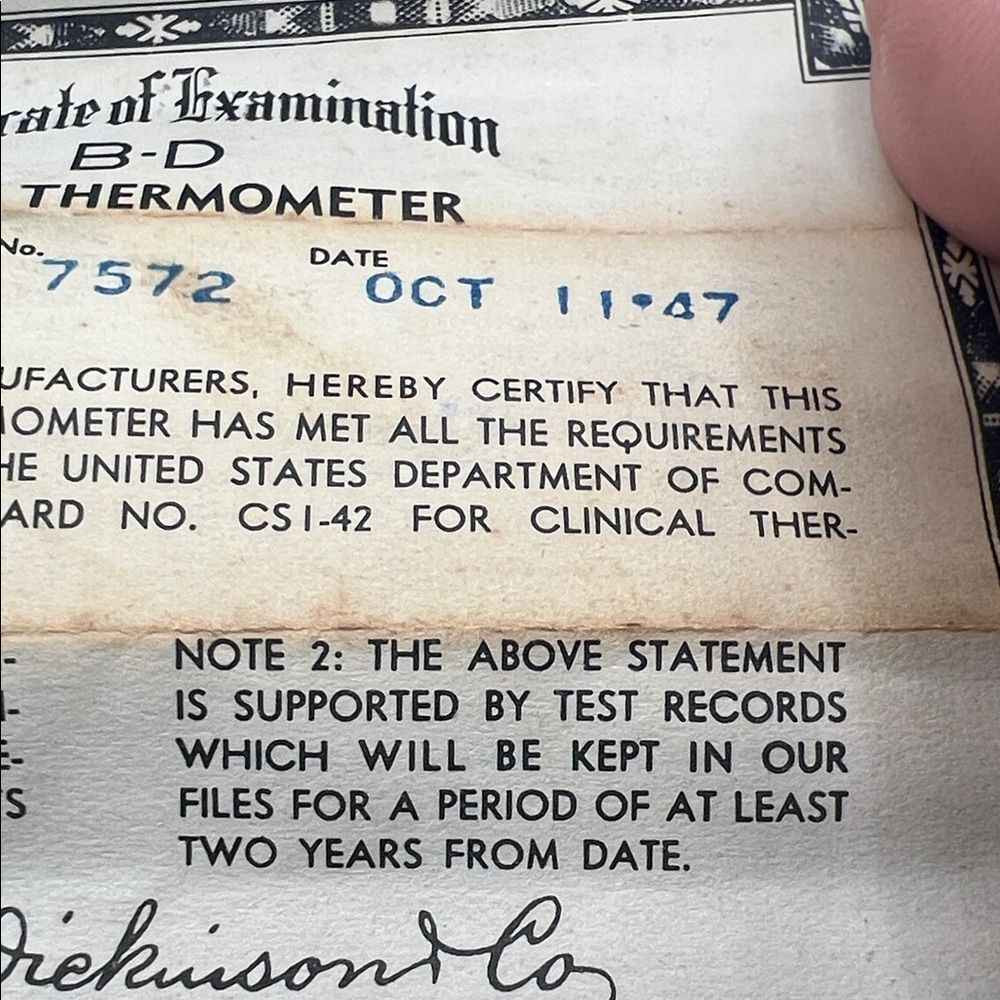 rate of Examination
B-D
THERMOMETER
No. 7572 DATE OCT 11•47
UFACTURERS, HEREBY CERTIFY THAT THIS
OMETER HAS MET ALL THE REQUIREMENTS
HE UNITED STATES DEPARTMENT OF COM-
ARD NO. CS1-42 FOR CLINICAL THER-
NOTE 2: THE ABOVE STATEMENT
IS SUPPORTED BY TEST RECORDS
WHICH WILL BE KEPT IN OUR
FILES FOR A PERIOD OF AT LEAST
TWO YEARS FROM DATE.
Dickinson & Co